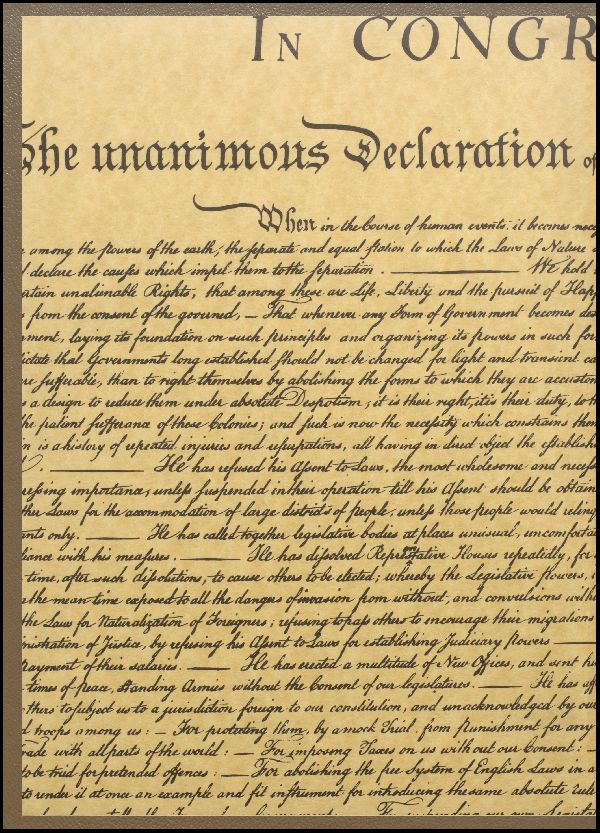 IN CONGR
The unanimous Declaration of
When in the Course of human events, it becomes nece
among the powers of the earth, the separate and equal station to which the Laws of Nature
declare the causes which impel them to the separation. ——— We hold
rtain unalienable Rights, that among these are Life, Liberty and the pursuit of Happ
from the consent of the governed, — That whenever any Form of Government becomes des
nment, laying its foundation on such principles and organizing its powers in such for
dictate that Governments long established should not be changed for light and transient ca
re sufferable, than to right themselves by abolishing the forms to which they are accustom
a design to reduce them under absolute Despotism, it is their right, it is their duty, to th
he patient sufferance of these Colonies; and such is now the necessity which constrains them
n is a history of repeated injuries and usurpations, all having in direct object the establish
——— He has refused his Assent to Laws, the most wholesome and necess
ressing importance, unless suspended in their operation till his Assent should be obtain
ther Laws for the accommodation of large districts of people, unless those people would relinq
nts only. ——— He has called together legislative bodies at places unusual, uncomfortab
liance with his measures. ——— He has dissolved Representative Houses repeatedly, for
time, after such dissolutions, to cause others to be elected; whereby the Legislative powers, i
the mean time exposed to all the dangers of invasion from without, and convulsions withi
the Laws for Naturalization of Foreigners; refusing to pass others to encourage their migrations
nistration of Justice, by refusing his Assent to Laws for establishing Judiciary powers ———
payment of their salaries. ——— He has erected a multitude of New Offices, and sent hi
times of peace, Standing Armies without the Consent of our legislatures. ——— He has aff
thers to subject us to a jurisdiction foreign to our constitution, and unacknowledged by our
d troops among us: — For protecting them, by a mock Trial, from punishment for any
rade with all parts of the world: — For imposing Taxes on us without our Consent: —
to be tried for pretended offences: — For abolishing the free System of English Laws in a
to render it at once an example and fit instrument for introducing the same absolute rule